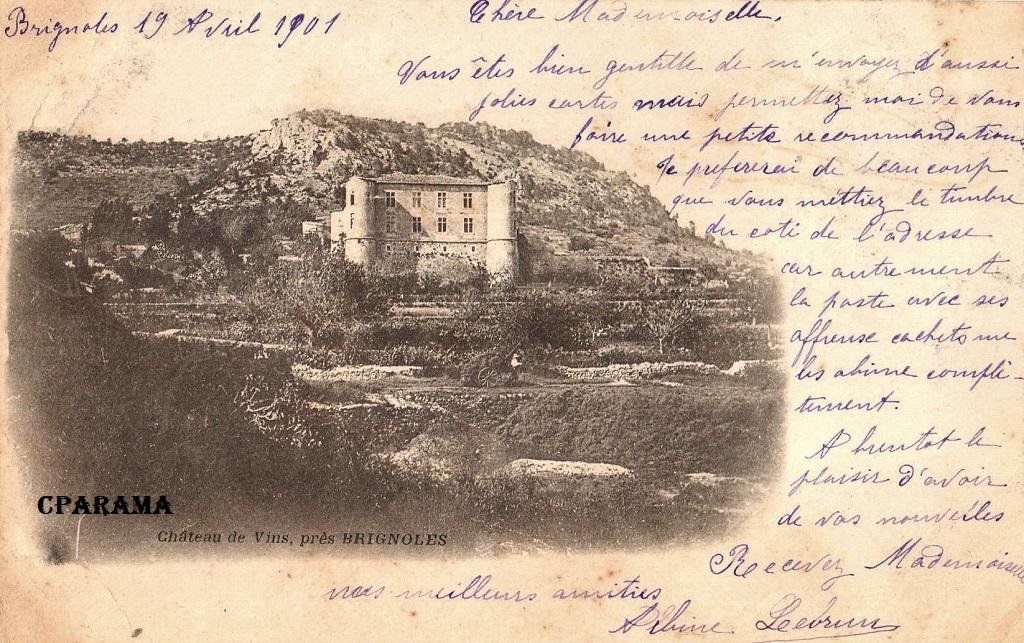 Brignoles 19 Avril 1901
Chère Mademoiselle,
Vous êtes bien gentille de m'envoyer d'aussi
jolies cartes mais permettez moi de vous
faire une petite recommandation,
Je prefererai de beaucoup
que vous méttiez le timbre
du coté de l'adresse
car autrement
la poste avec ses
affreuse cachets me
les abime complè-
tement.
A bientot le
plaisir d'avoir
de vos nouvelles
Recevez Mademoiselle
nos meilleurs amitiés
Albine Lebrun
CPARAMA
Château de Vins, près BRIGNOLES